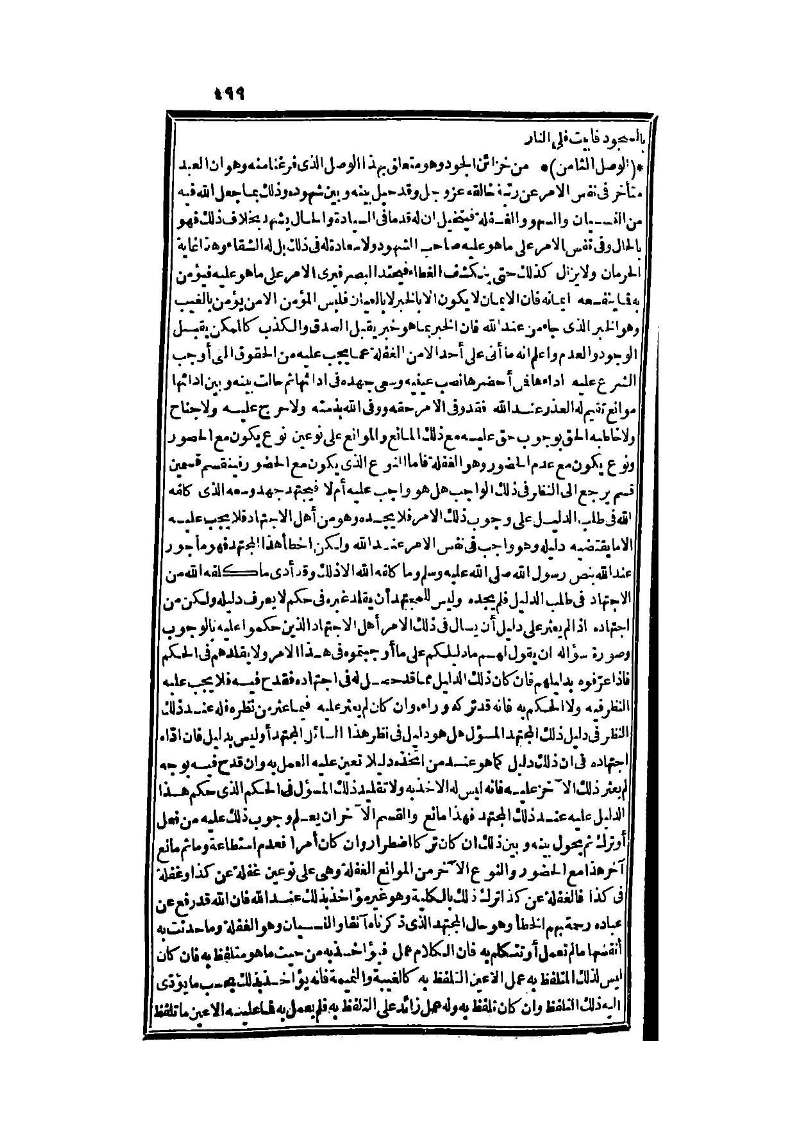 ٤٩٩
بالسجود فابيت فلي النار
*(الوصل الثامن)* من خزائن الجود وهو متعلق بهذا الوصل الذي فرغنا منه وهو ان العبد
متأخر في نفس الامر عن رتبة خالقه عز وجل وقد حيل بينه وبين شهوده وذلك بما جعل الله فيه
من النسيان والسهو والغفلة فيتخيل ان له قدما في السيادة والحال يشهد بخلاف ذلك فهو
بالحال وفي نفس الامر على ما هو عليه صاحب الشهود ولا سعادة له في ذلك بل له الشقاء وهذا غاية
الحرمان ولا يزال كذلك حتى ينكشف الغطاء فيحتد البصر فيرى الامر على ما هو عليه فيؤمن
به فما ينفعه ايمانه فان الايمان لا يكون الا بالخبر لا بالعيان فليس المؤمن الا من يؤمن بالغيب
وهو الخبر الذي جاء من عند الله فان الخبر بما هو خبر يقبل الصدق والكذب كالممكن يقبل
الوجود والعدم واعلم انه ما أتى على أحد الا من الغفلة عما يجب عليه من الحقوق التي أوجب
الشرع عليه اداءها فمن أحضرها نصب عينيه وسعى جهده في ادائها ثم حالت بينه وبين ادائها
موانع تقيم له العذر عند الله فقد وفى الامر حقه ووفى الله بذمته ولا حرج عليه ولا جناح
ولا خاطبه الحق بوجوب حق عليه مع ذلك المانع والموانع على نوعين نوع يكون مع الحضور
ونوع يكون مع عدم الحضور وهو الغفلة فاما النوع الذي يكون مع الحضور فينقسم قسمين
قسم يرجع الى النظر في ذلك الواجب هل هو واجب عليه أم لا فيجتهد جهد وسعه الذي كلفه
الله في طلب الدليل على وجوب ذلك الامر فلا يجده وهو من أهل الاجتهاد فلا يجب عليه
الا ما يقتضيه دليله وهو واجب في نفس الامر عند الله ولكن اخطأ هذا المجتهد فهو مأجور
عند الله بنص رسول الله صلى الله عليه وسلم وما كلفه الله الا ذلك وقد أدى ما كلفه الله من
الاجتهاد في طلب الدليل فلم يجده وليس للمجتهد أن يقلد غيره في حكم لا يعرف دليله ولكن من
اجتهاده اذا لم يعثر على دليل أن يسال في ذلك الامر أهل الاجتهاد الذين حكموا عليه بالوجوب
وصورة سؤاله ان يقول لهم ما دليلكم على ما أوجبتموه في هذا الامر ولا يقلدهم في الحكم
فاذا عرفوه بدليلهم فان كان ذلك الدليل مما قد حصل له في اجتهاده فقدح فيه فلا يجب عليه
النظر فيه ولا الحكم به فانه قد تركه وراءه وان كان لم يعثر عليه فيما عثر من نظره فله عند ذلك
النظر في دليل ذلك المجتهد المسؤل هل هو دليل في نظر هذا السائل المجتهد أو ليس بدليل فان اداه
اجتهاده في ان ذلك دليل كما هو عند من اتخذه دليلا تعين عليه العمل به وان قدح فيه بوجه
لم يعثر ذلك الآخر عليه فانه ليس له الاخذ به ولا تقليد ذلك المسؤل في الحكم الذي حكم هذا
الدليل عليه عند ذلك المجتهد فهذا مانع والقسم الآخر ان يعلم وجوب ذلك عليه من فعل
أو ترك ثم يحول بينه وبين ذلك ان كان تركا اضطرار وان كان أمرا فعدم استطاعة وما ثم مانع
آخر هذا مع الحضور والنوع الآخر من الموانع الغفلة وهي على نوعين غفلة عن كذا وغفلة
في كذا فالغفلة عن كذا ترك ذلك بالكلية وهو غير مؤاخذ بذلك عند الله فان الله قد رفع عن
عباده رحمة بهم الخطأ وهو حال المجتهد الذي ذكرناه آنفا والنسيان وهو الغفلة وما حدثت به
أنفسها ما لم تعمل أو تتكلم به فان الكلام عمل فيؤاخذ به من حيث ما هو متلفظ به فان كان
ليس لذلك المتلفظ به عمل الا عين التلفظ به كالغيبة والنميمة فانه يؤاخذ بذلك بحسب ما يؤدي
اليه ذلك التلفظ وان كان تلفظ به وله عمل زائد على التلفظ به فلم يعمل به فما عليه الا عين ما تلفظ